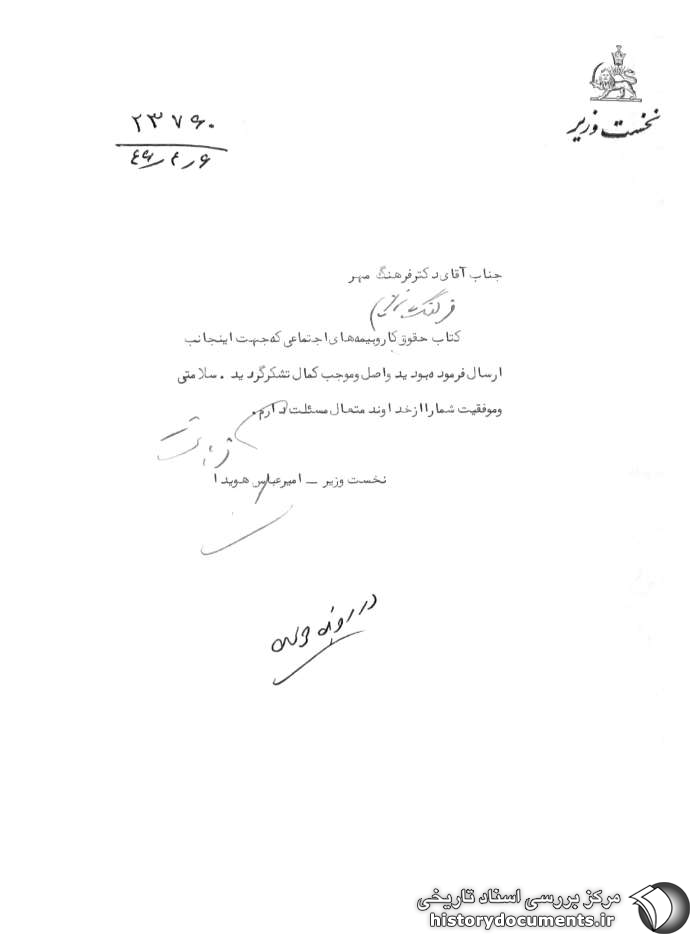 نخست وزیر
۲۳۷۶۰
۴۶ر۴ر۶
جناب آقای دکتر فرهنگ مهر
فرهنگ عزیزم
کتاب حقوق کار و بیمه‌های اجتماعی که جهت اینجانب
ارسال فرموده بودید واصل و موجب کمال تشکر گردید . سلامتی
و موفقیت شما را از خداوند متعال مسئلت دارم.
قربانت
نخست وزیر – امیرعباس هویدا
در پرونده
مرکز بررسی اسناد تاریخی
historydocuments.ir